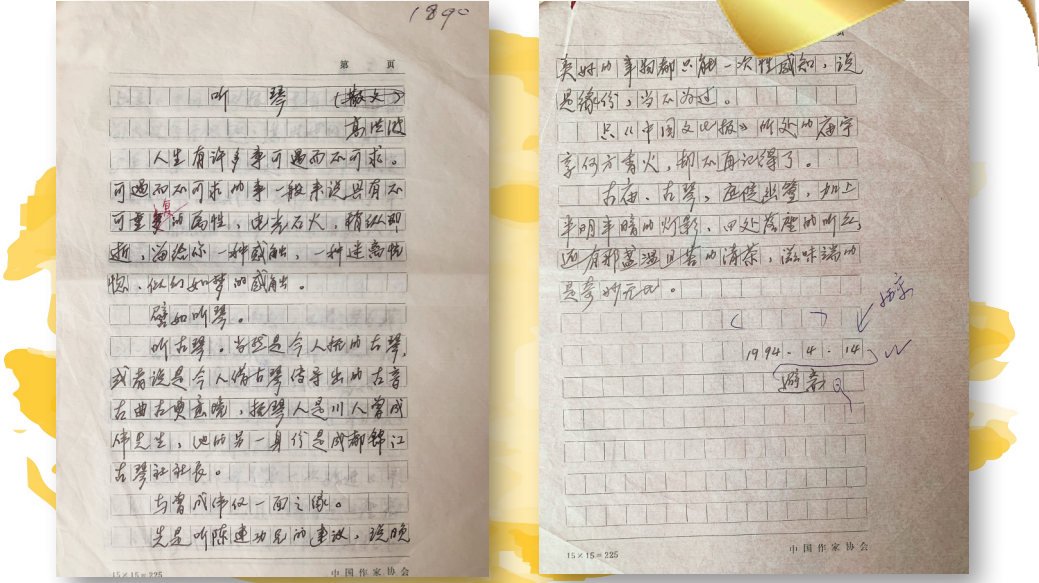 1890
第 页
听琴 (散文)
高洪波
人生有许多事可遇而不可求。
可遇而不可求的事一般来说具有不
可重复的属性，电光石火，稍纵即
逝，留给你一种感触，一种迷离恍
惚、似幻如梦的感触。
譬如听琴。
听古琴。当然是今人抚的古琴，
或者说是今人借古琴传导出的古音
古曲古典意境，抚琴人是川人曾成
伟先生，他的另一身份是成都锦江
古琴社社长。
与曾成伟仅一面之缘。
先是听陈建功兄的建议，说晚
15×15=225
中国作家协会
页
美好的事物都只能一次性感知，说
是缘份，当不为过。
只《中国文化报》所处的庙宇
享何方香火，却不再记得了。
古庙、古琴，庭院幽篁，加上
半明半暗的灯影，四处落座的听众，
还有那盏温且苦的清茶，滋味端的
是奇妙无比。
1994.4.14
15×15=225
中国作家协会